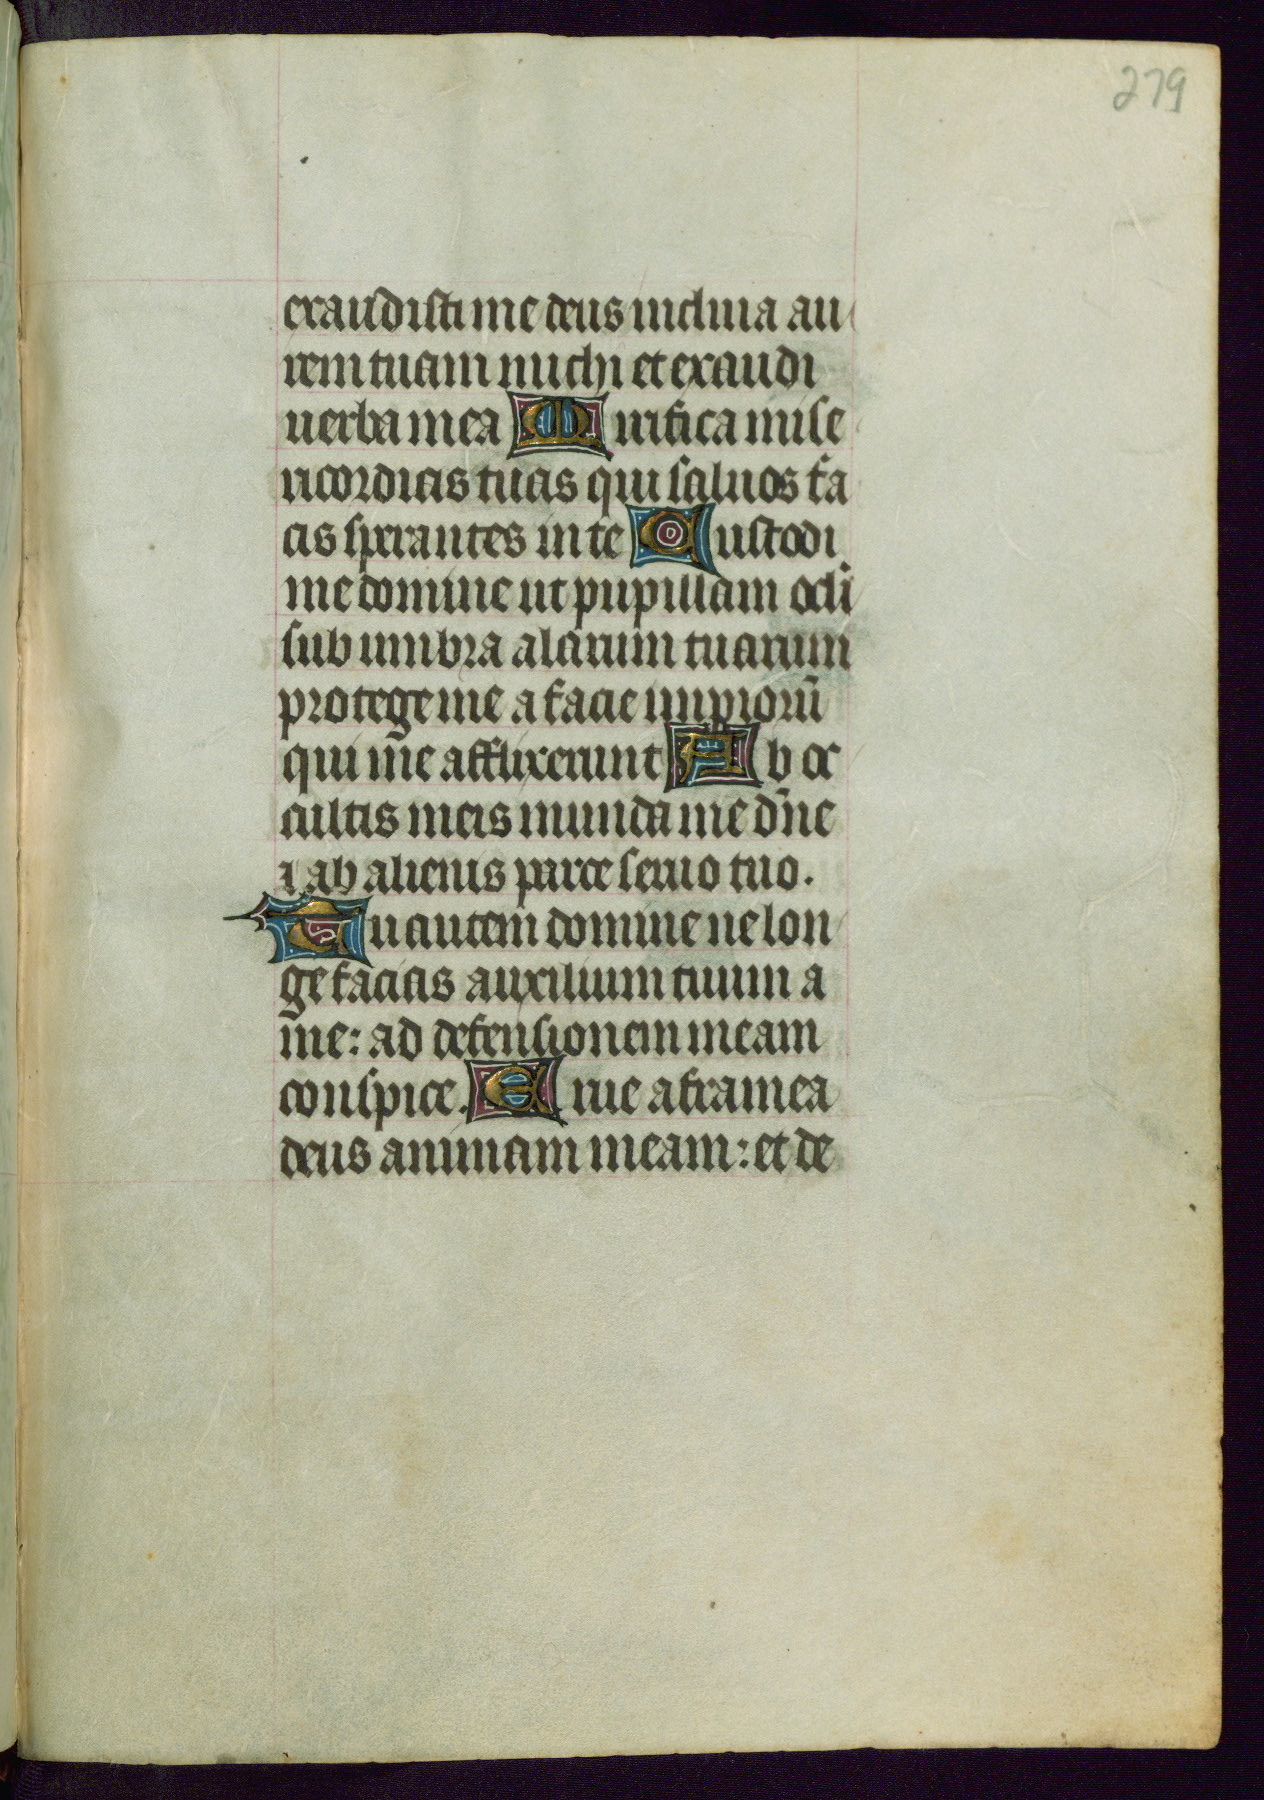 279
exaudisti me deus inclina au
rem tuam michi et exaudi
uerba mea Mirifica mise
ricordias tuas qui saluos fa
cis sperantes in te Custodi
me domine ut pupillam ocli
sub umbra alarum tuarum
protege me a facie impiorū
qui me afflixerunt Ab oc
cultis meis munda me dn̄e
⁊ ab alienis parce seruo tuo.
Tu autem domine ne lon
ge facias auxilium tuum a
me: ad defensionem meam
conspice. Erue a framea
deus animam meam: et de